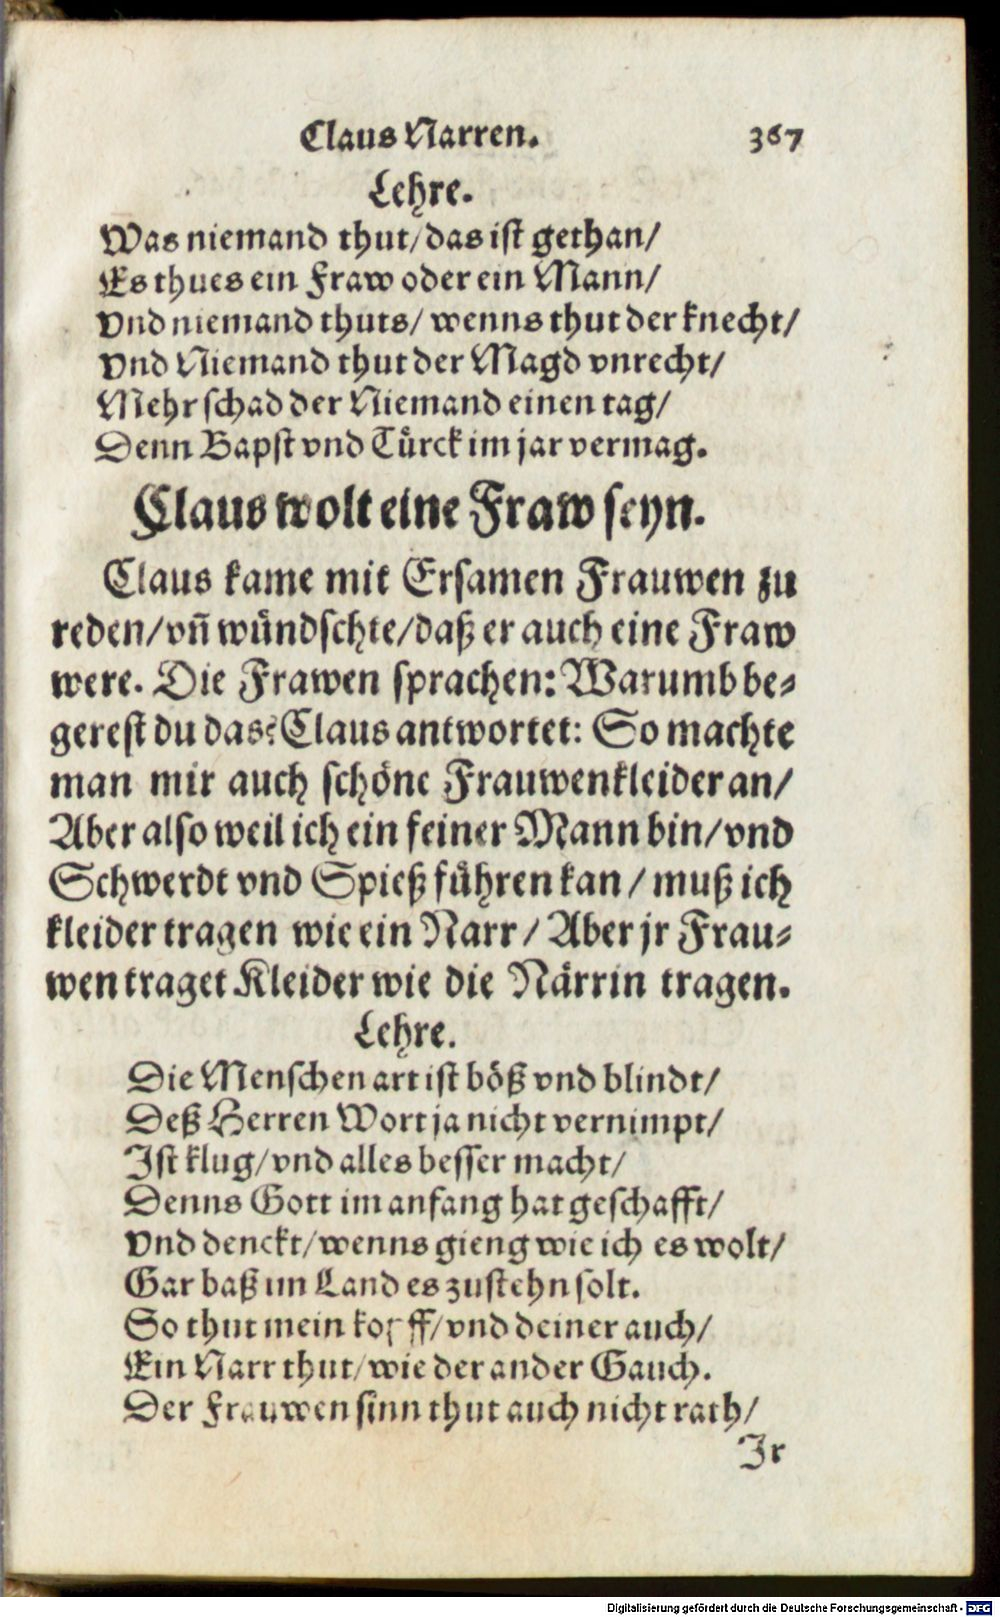 Claus Narren. 367
Lehre.
Was niemand thut/das ist gethan/
Es thues ein Fraw oder ein Mann/
Vnd niemand thuts/ wenns thut der knecht/
Vnd Niemand thut der Magd vnrecht/
Mehr schad der Niemand einen tag/
Denn Bapst vnd Türck im jar vermag.
Claus wolt eine Fraw seyn.
Claus kame mit Ersamen Frauwen zu
reden/vñ wündschte/daß er auch eine Fraw
were. Die Frawen sprachen: Warumb be-
gerest du das? Claus antwortet: So machte
man mir auch schöne Frauwenkleider an/
Aber also weil ich ein feiner Mann bin/vnd
Schwerdt vnd Spieß führen kan/ muß ich
kleider tragen wie ein Narr/ Aber jr Frau-
wen traget Kleider wie die Närrin tragen.
Lehre.
Die Menschen art ist böß vnd blindt/
Deß Herren Wort ja nicht vernimpt/
Ist klug/vnd alles besser macht/
Denns Gott im anfang hat geschafft/
Vnd denckt/wenns gieng wie ich es wolt/
Gar baß im Land es zustehn solt.
So thut mein kopff/vnd deiner auch/
Ein Narr thut/wie der ander Gauch.
Der Frauwen sinn thut auch nicht rath/
Ir
Digitalisierung gefördert durch die Deutsche Forschungsgemeinschaft - DFG